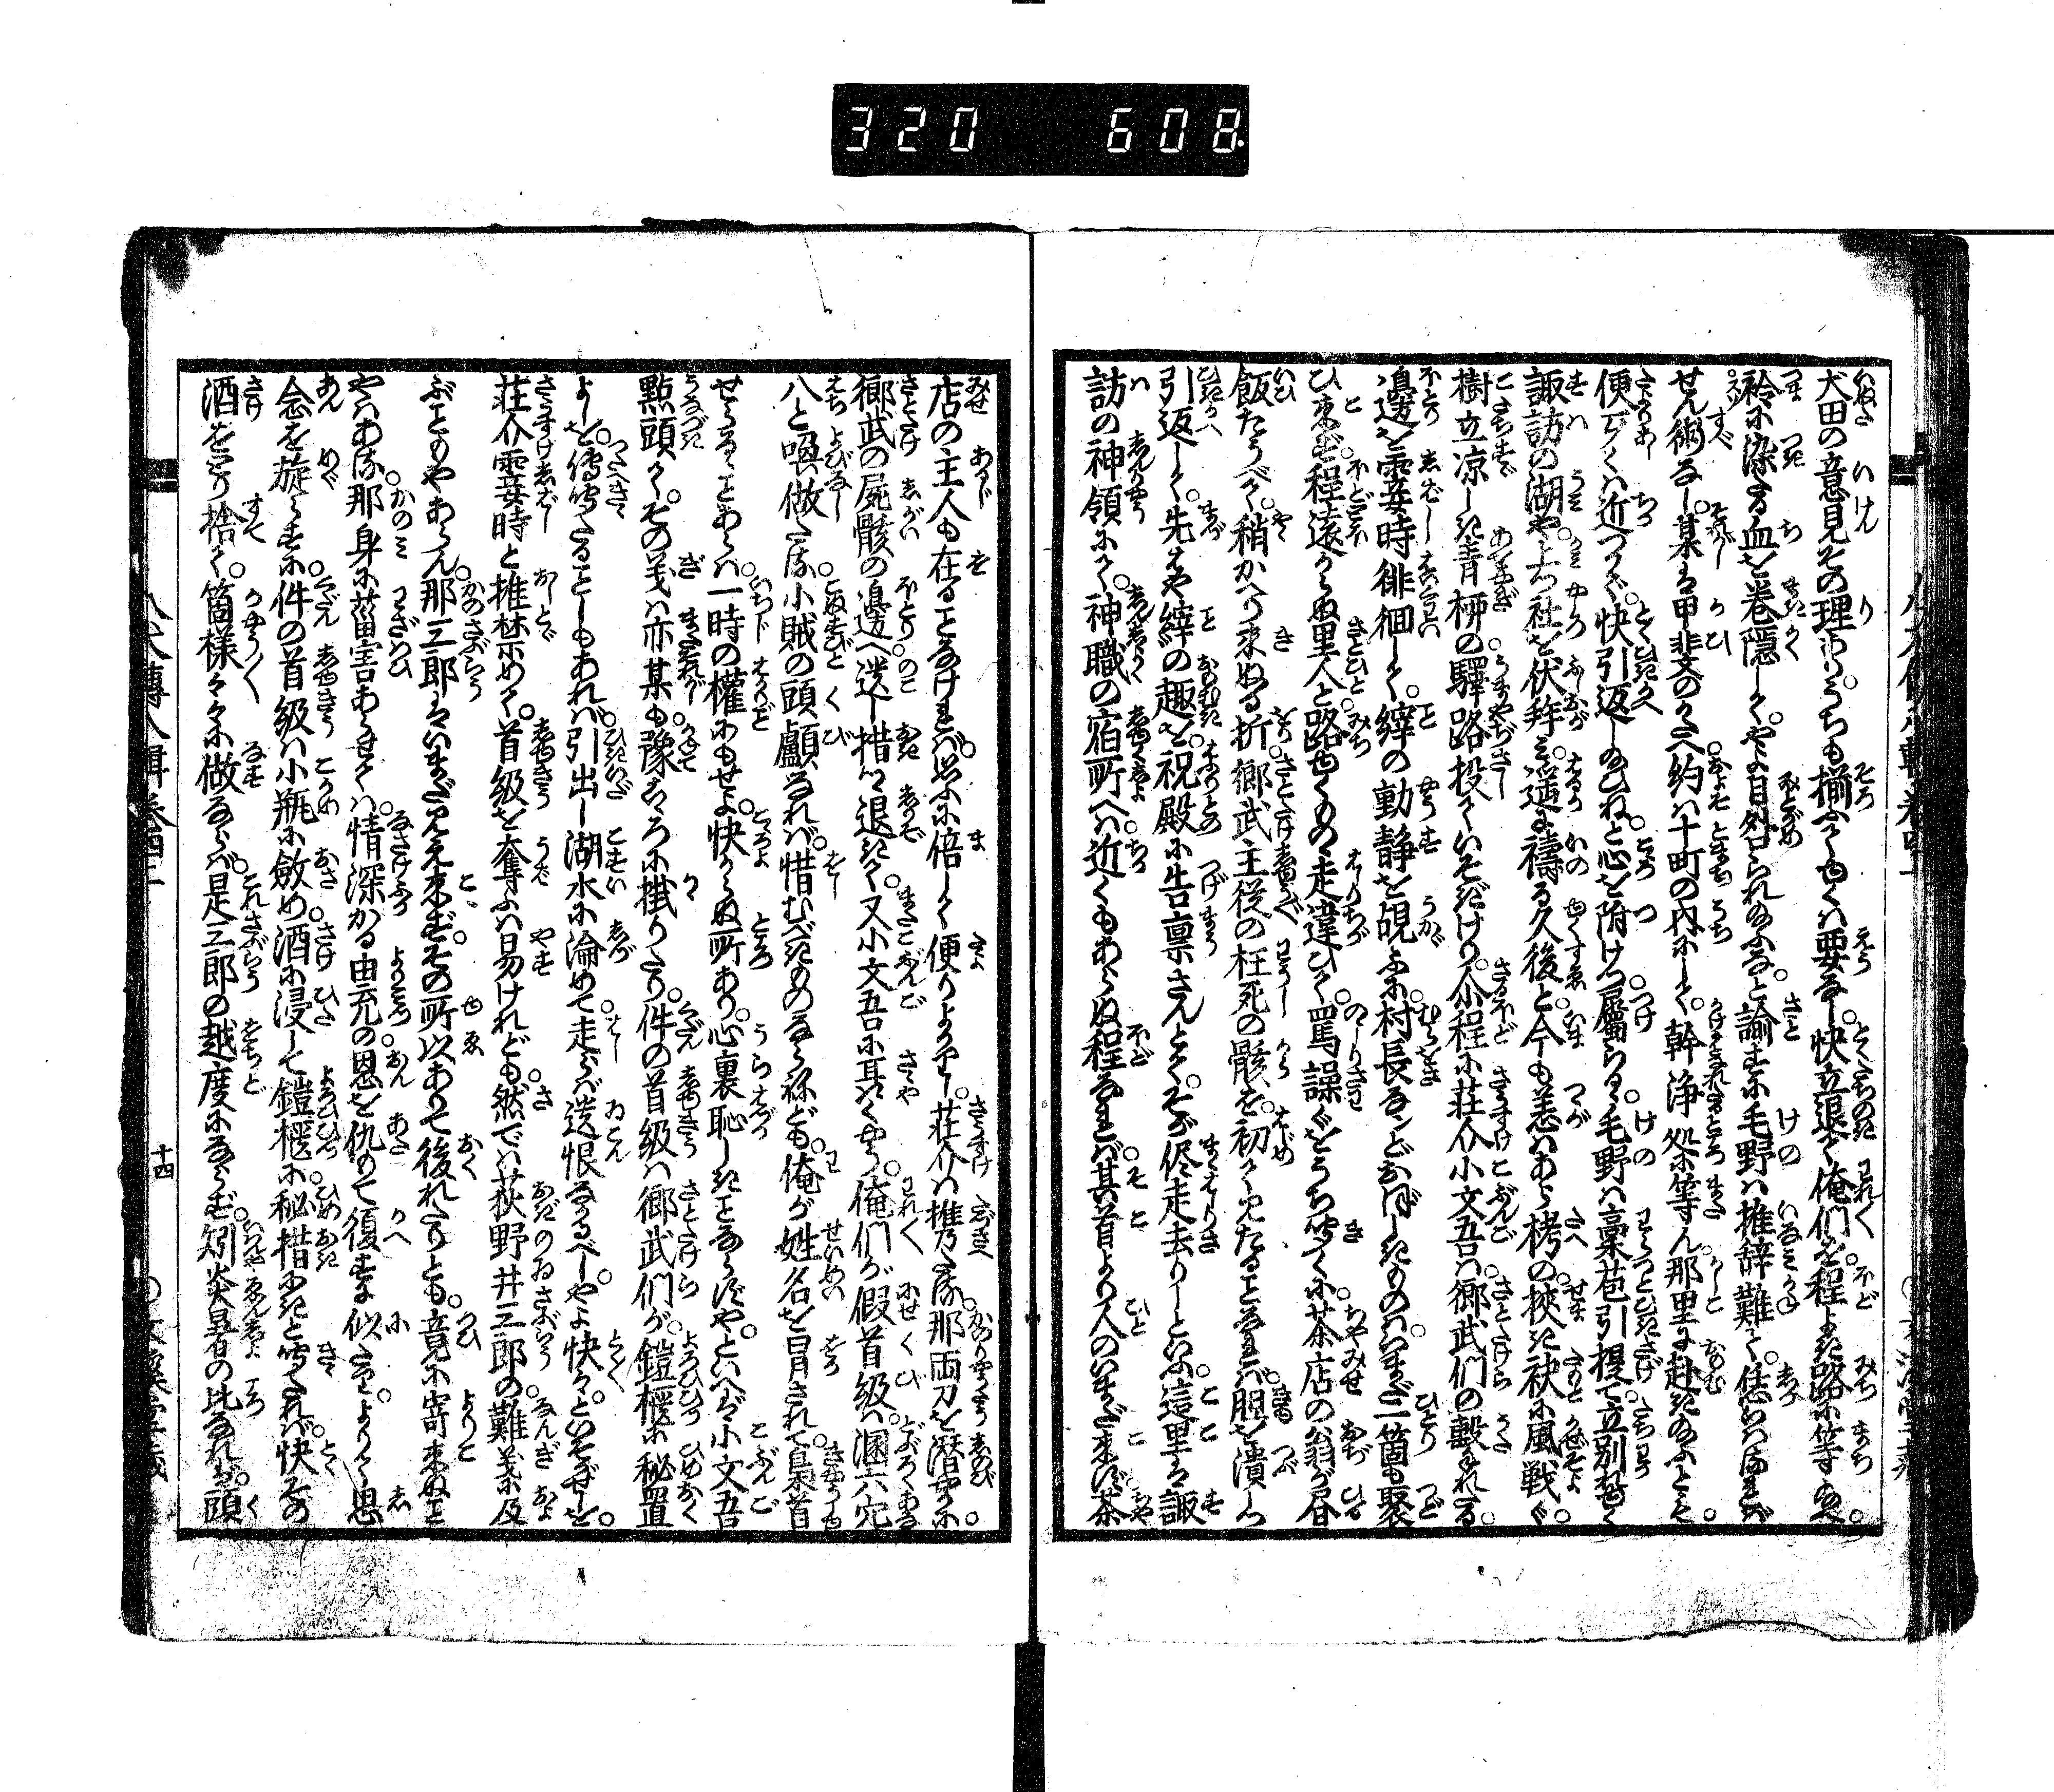 320 608
犬田の意見その理りあり。うちも揃ふてゆくは要なし。快立退て俺們を。程よき路に等ゆへ。
衿に染る血を巻隠して。やよ目外られ給ふな。と諭すに毛野は推辞難て。恁らは
せん術なし。某は甲斐のかた。約は十町の内にして。幹浄処に等ん。那里に赴き給ふとも。
便
快引返し給ひねと。心を附けつ属らる。毛野は藁苞引提て立別れゆく
諏訪の湖や上ち社を伏拝み。遥に禱る久後と。今も恙はあら栲の。挾き袂に風戦ぐ。
樹立凉しき青柳の。驛路投ていそぎけり。介程に荘介小文吾は。郷武們の轂れたる。
邊を霎時徘徊して。縡の動静を覘ふに。村長などおぼしきものは。いまだ一箇も聚
ひ来ず。程遠からぬ里人と。路ゆくもの走違ひて。罵譟ぐをうち聞くに。茶店の翁が昼
飯たうべて。稍かへり来ぬる折。郷武主従の枉死の骸を。初て見たることなれば。胆を潰しつ
引返して。先はや縡の趣を。祝殿に告稟さんとて。そが侭走去りしといふ。這里は諏
訪の神領にて。神職の宿所へは。近くもあらぬ程なれば。其首より人のいまだ来ず。茶
店の主人も在ることなければ。思ふに倍して便りよかりし。荘介は推乃たる。那両刀を潜やかに。
郷武の屍骸の邊へ。遺し措つ退きて。又小文吾に耳語くやう。俺們が假首級は。溷六穴
八と喚做たる。小賊の頭顱なれば。惜むべきものならねども。俺が姓名を冒されて。梟首
せらるゝことあらば。一時の權にもせよ。快からぬ所あり。心裏恥しきことならずや。といへば小文吾
點頭て。その義は亦某も。豫こゝろに掛りたり。件の首級は郷武們が。鎧櫃に秘置
よしを。傳聞たることしもあれば。引出し湖水に淪めて。走らば遺恨なかるべし。やよ快々。といそがせしを。
荘介霎時と推禁めて。首級を奪ふは易けれども。然では荻野井三郎の。難義に及
ぶこともやあらん。那三郎はいまだ見え来ず。その所以ありて後れたりとも。竟に寄来ぬこと
やはある。那身に葘害あらせては。情深かる由充の。恩を仇もて復すに似たり。よりて思
念を旋らすに。件の首級は小瓶に斂め。酒に浸して鎧櫃に。秘措にきと聞たれば。快その
酒をとり捨て。箇様々々に做ならば。是三郎の越度にならず。矧炎暑の比なれば。頭
八犬傳八輯卷四
十四